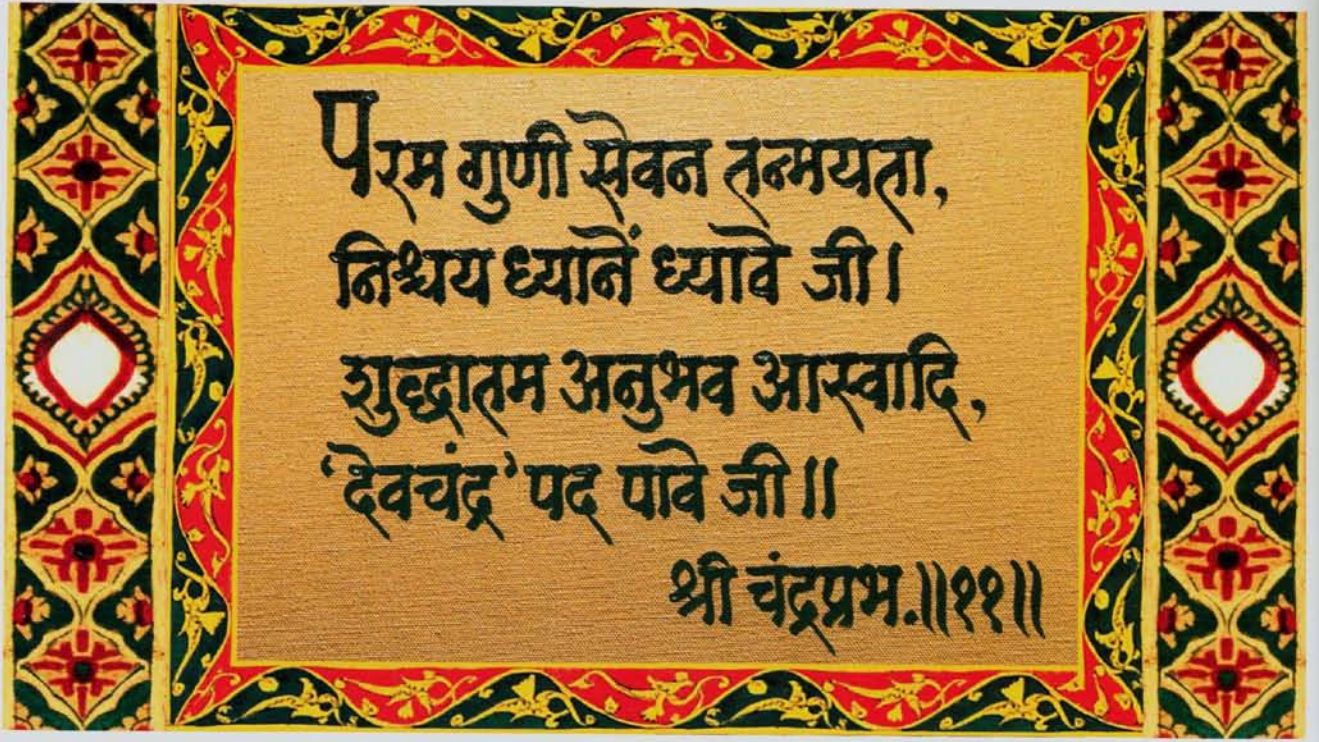 परम गुणी सेवन तन्मयता,
निश्चय ध्यानें ध्यावे जी।
शुद्धातम अनुभव आस्वादि,
‘देवचंद्र’ पद पावे जी॥
श्री चंद्रप्रभ.॥११॥